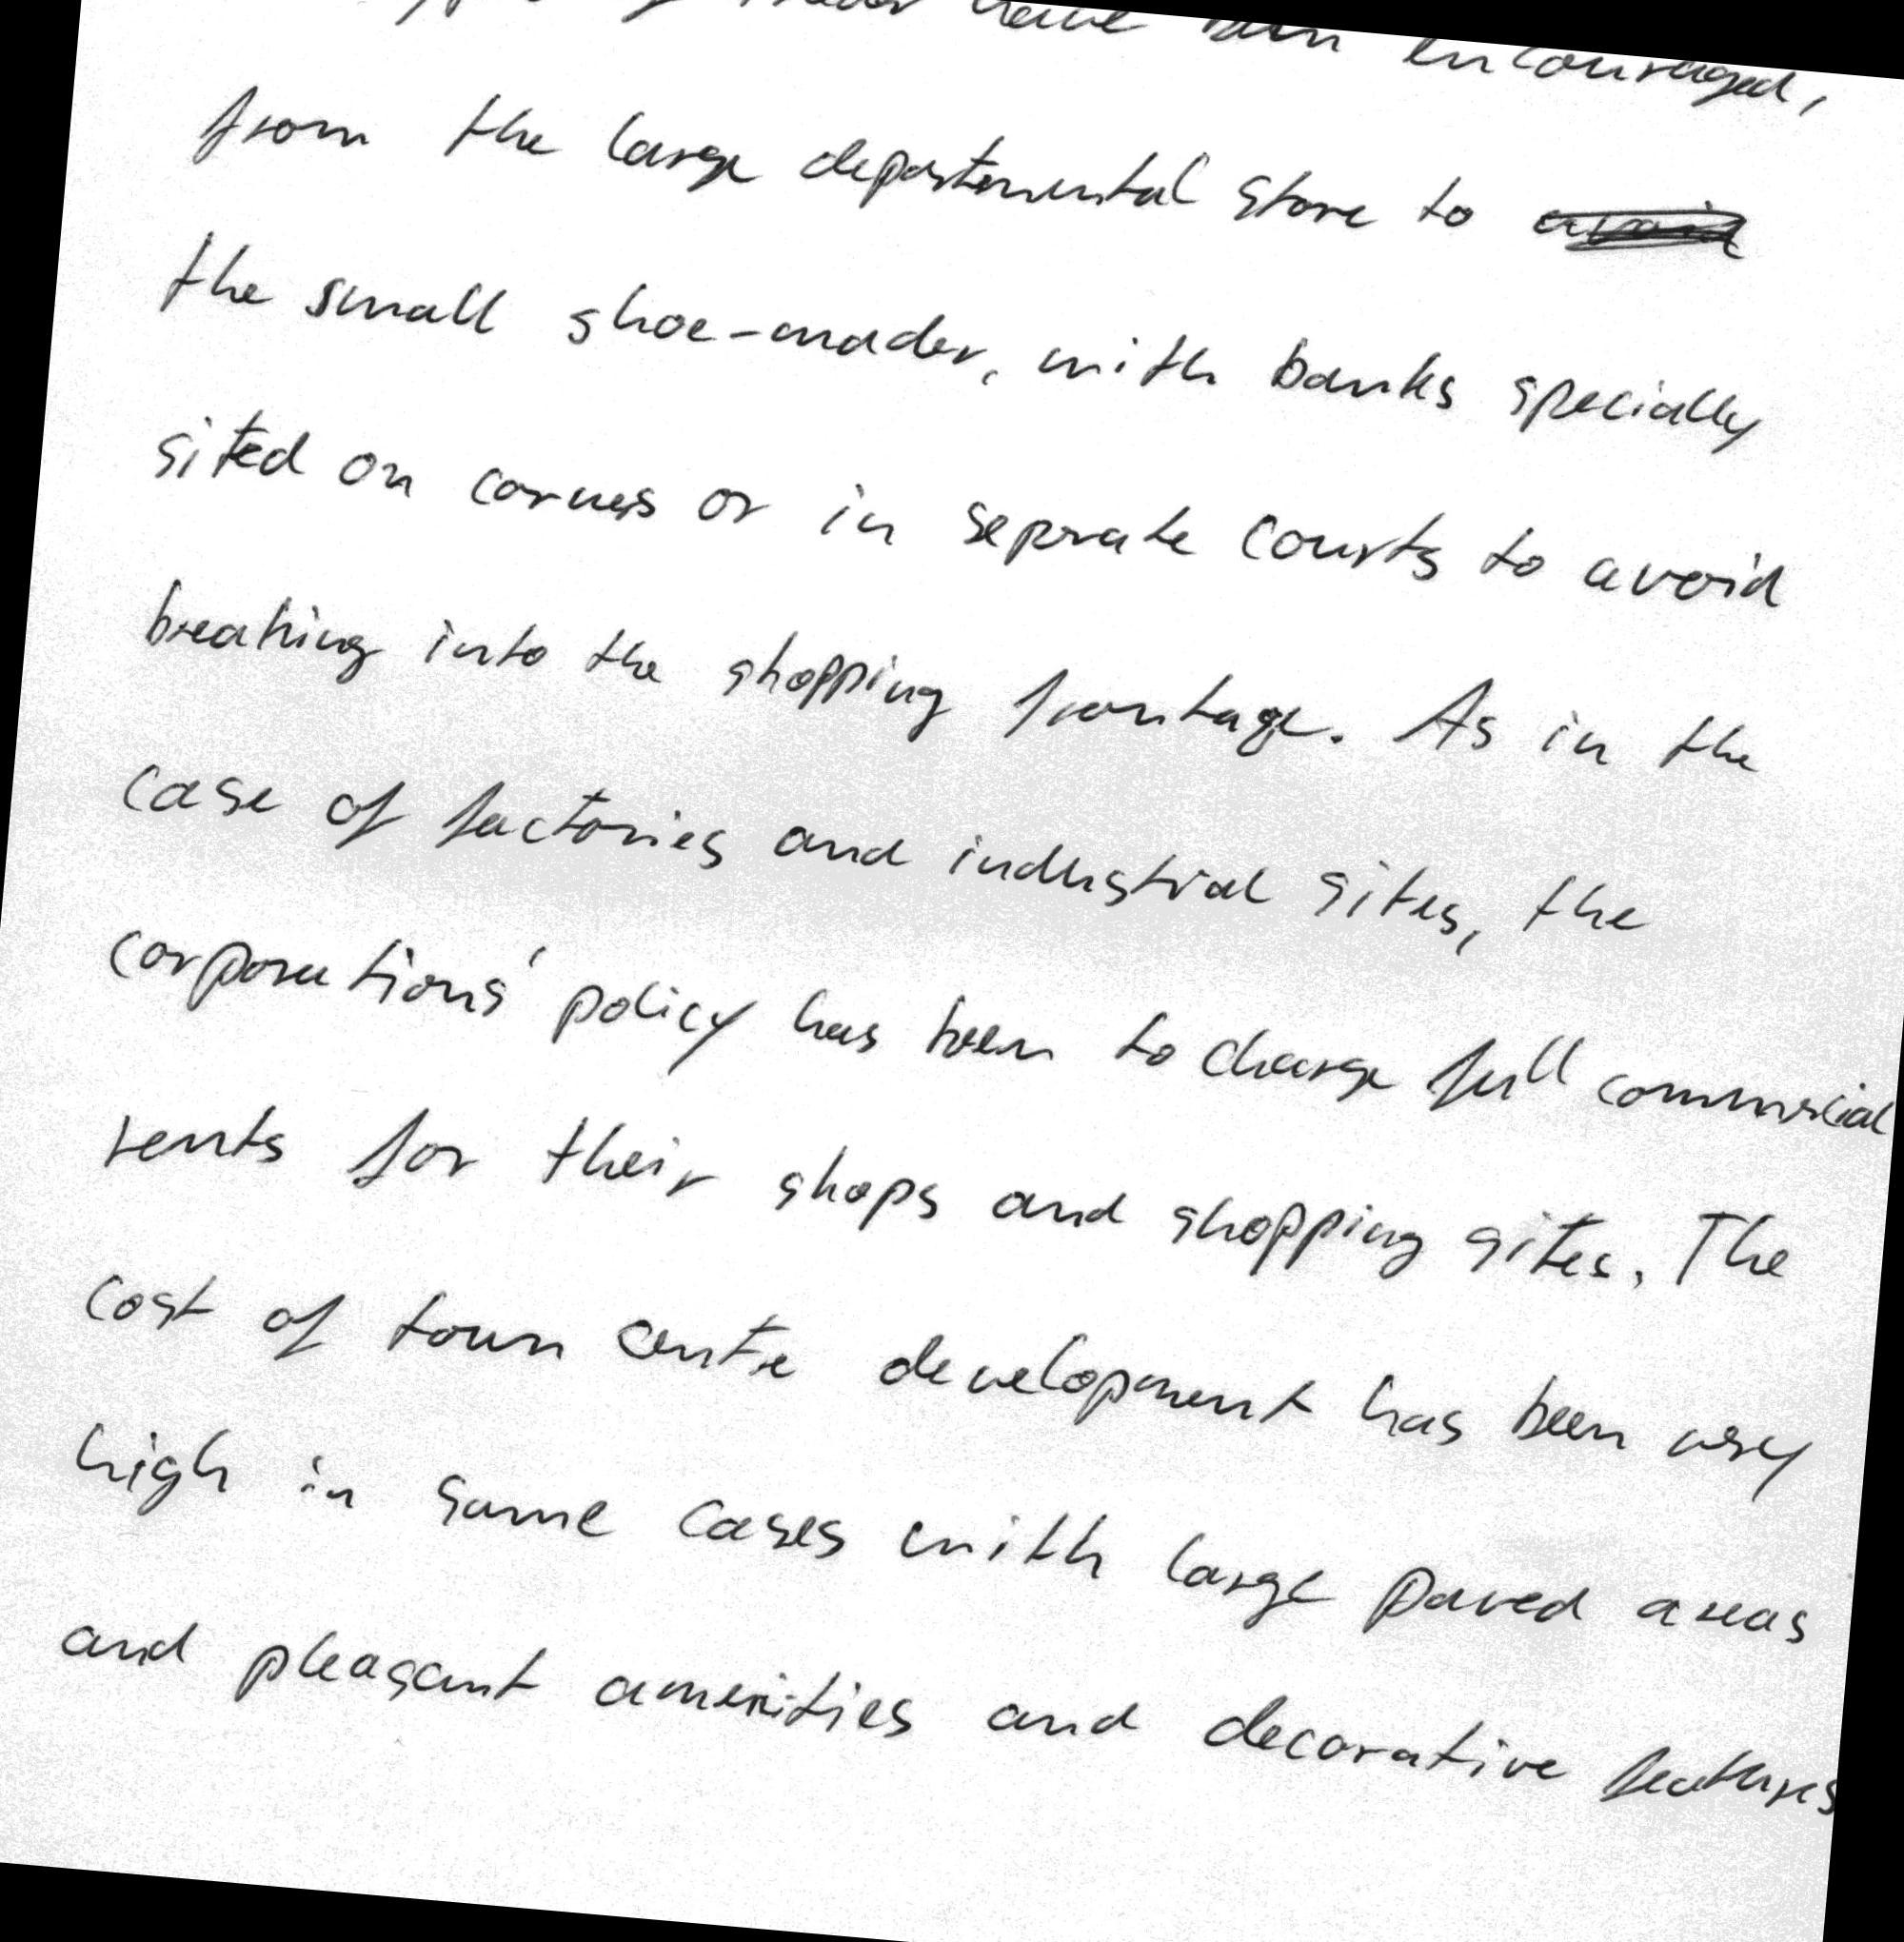 have been encouraged,
from the large departmental store to
the small shoe-mader, with banks specially
sited on corners or in seprate courts to avoid
breaking into the shopping frontage. As in the
case of factories and industrial sites, the
corporations' policy has been to charge full commercial
rents for their shops and shopping sites. The
cost of town centre development has been very
high in some cases with large paved areas
and pleasant amenities and decorative features